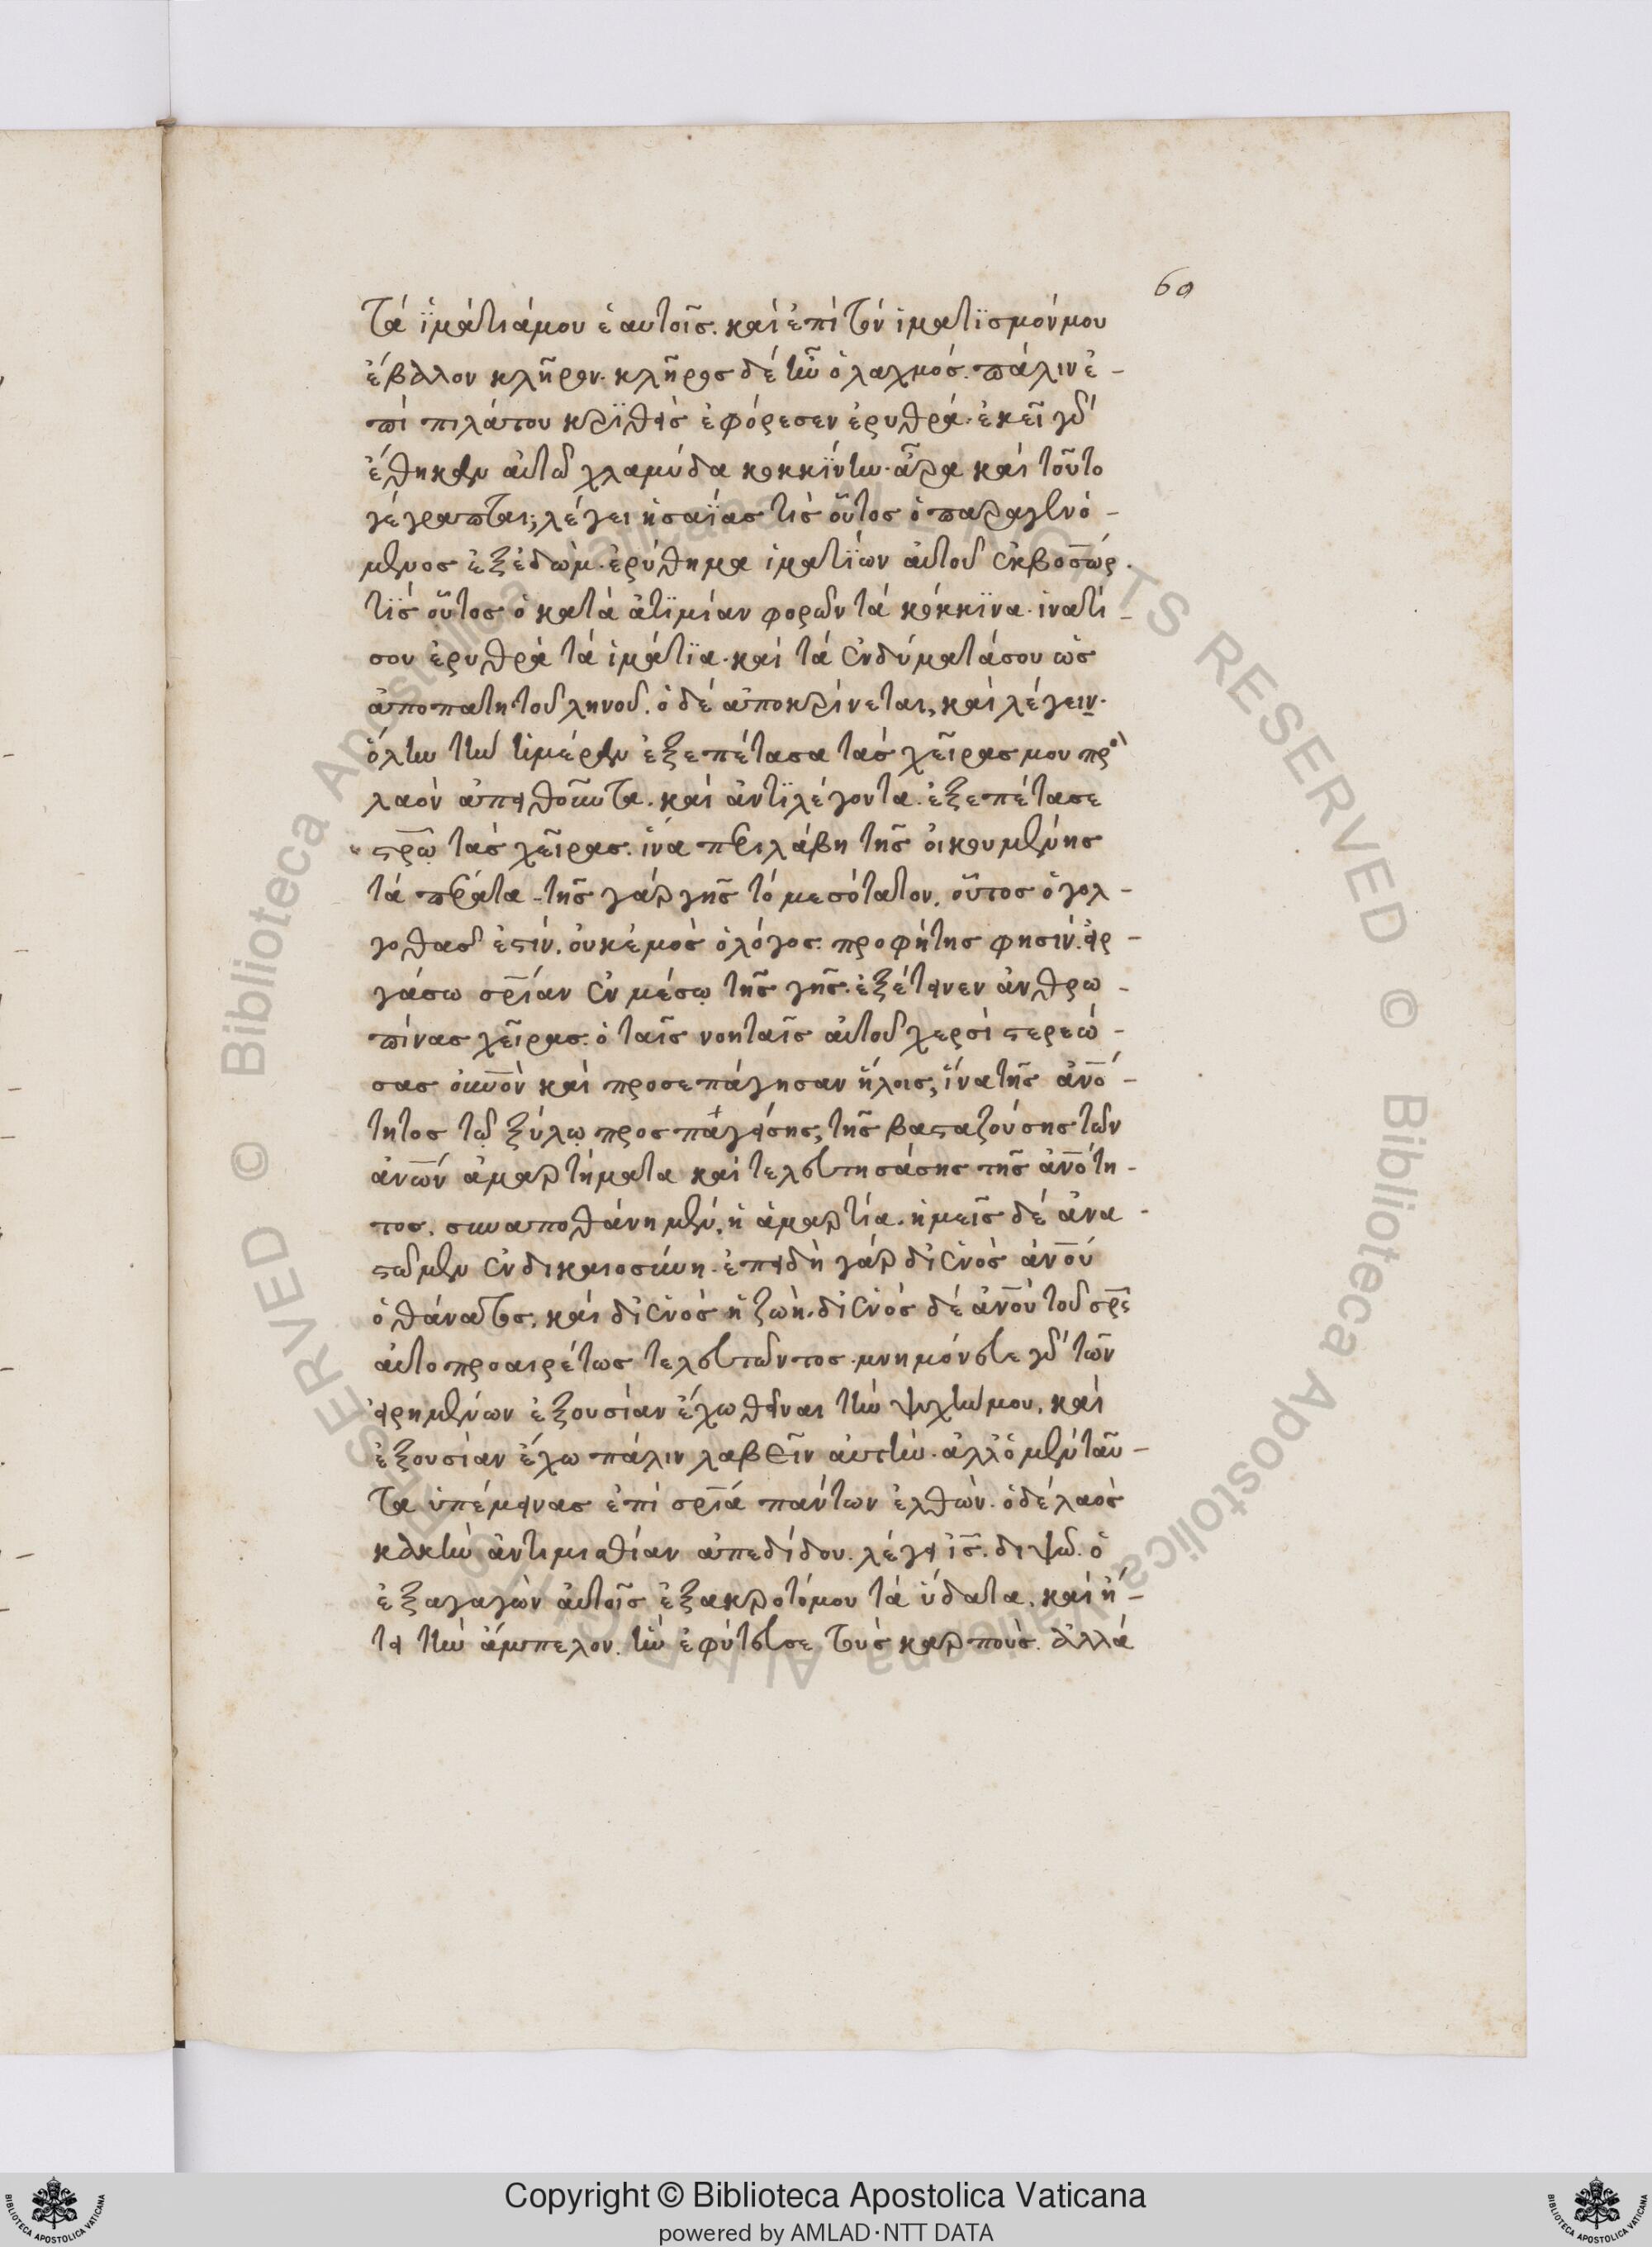 60
τά ἱμάτιά μου ἑαυτοῖς. καί ἐπί τόν ἱματϊσμόν μου
ἔβαλον κλῆρον. κλῆρος δέ ἦν ὁ λαχμός. πάλιν ἐ-
πί πιλάτου κριθείς ἐφόρεσεν ἐρυθρά. ἐκεῖ γὰρ
ἔθηκαν αὐτῶ χλαμύδα κοκκίνην. ἆρα καί τοῦτο
γέγραπται; λέγει ἡσαΐας τίς οὗτος ὁ παραγινό-
μενος ἐξ ἐδώμ. ἐρύθημα ἱματίων αὐτοῦ ἐκ βοσώρ.
τίς οὗτος ὁ κατά ἀτιμίαν φορῶν τά κόκκινα. ἱνατί
σου ἐρυθρά τά ἱμάτια. καί τά ἐνδύματά σου ὡς
ἀπό πατητοῦ ληνοῦ. ὁ δέ ἀποκρίνεται, καί λέγειν.
ὅλην τήν ἡμέραν ἐξεπέτασα τάς χεῖρας μου πρὸς
λαόν ἀπειθοῦντα. καί ἀντιλέγοντα. ἐξεπέτασε
ϛρ̅ω τάς χεῖρας. ἵνα περιλάβη τῆς οἰκουμένης
τά πέρατα. τῆς γάρ γῆς τό μεσότατον. οὗτος ὁ γολ-
γοθᾶς ἐστίν. οὐκ ἐμός ὁ λόγος. προφήτης φησίν. εἰρ-
γάσω σρ̅ίαν ἐν μέσῳ τῆς γῆς. ἐξέτεινεν ἀνθρω-
πίνας χεῖρας. ὁ ταῖς νοηταῖς αὐτοῦ χερσί στερεώ-
σας οὐν̅όν καί προσεπάγησαν ἥλοις, ἵνα τῆς ἀν̅ό-
τητος τῷ ξύλῳ προσπαγείσης, τῆς βασταζούσης τῶν
ἀν̅ων ἁμαρτήματα καί τελευτησάσης τῆς ἀν̅ότη-
τος. συναποθάνη μέν. ἡ ἁμαρτία. ἡμεῖς δέ ἀνα-
στῶμεν ἐν δικαιοσύνη. ἐπειδή γάρ δι ἑνός ἀν̅ου
ὁ θάνατος. καί δι ἑνός ἡ ζωή. δι ἑνός δέ ἀν̅ου τοῦ σρ̅ς
αὐτοπροαιρέτως τελευτῶντος. μνημόνευε γὰρ τῶν
εἰρημένων ἐξουσίαν ἔχω θεῖναι τήν ψυχήν μου. καί
ἐξουσίαν ἔχω πάλιν λαβεῖν αὐτήν. ἀλλ ὁ μέν ταῦ-
τα ὑπέμεινας ἐπί σρ̅ία πάντων ἐλθών. ὁ δέ λαός
κακήν ἀντιμισθίαν ἀπεδίδου. λέγει ἰς̅. διψῶ. ὁ
ἐξαγαγών αὐτοῖς ἐξ ἀκροτόμου τά ὕδατα. καί ἤ-
τει τήν ἄμπελον. ἥν ἐφύτευσε τούς καρπούς. ἀλλά